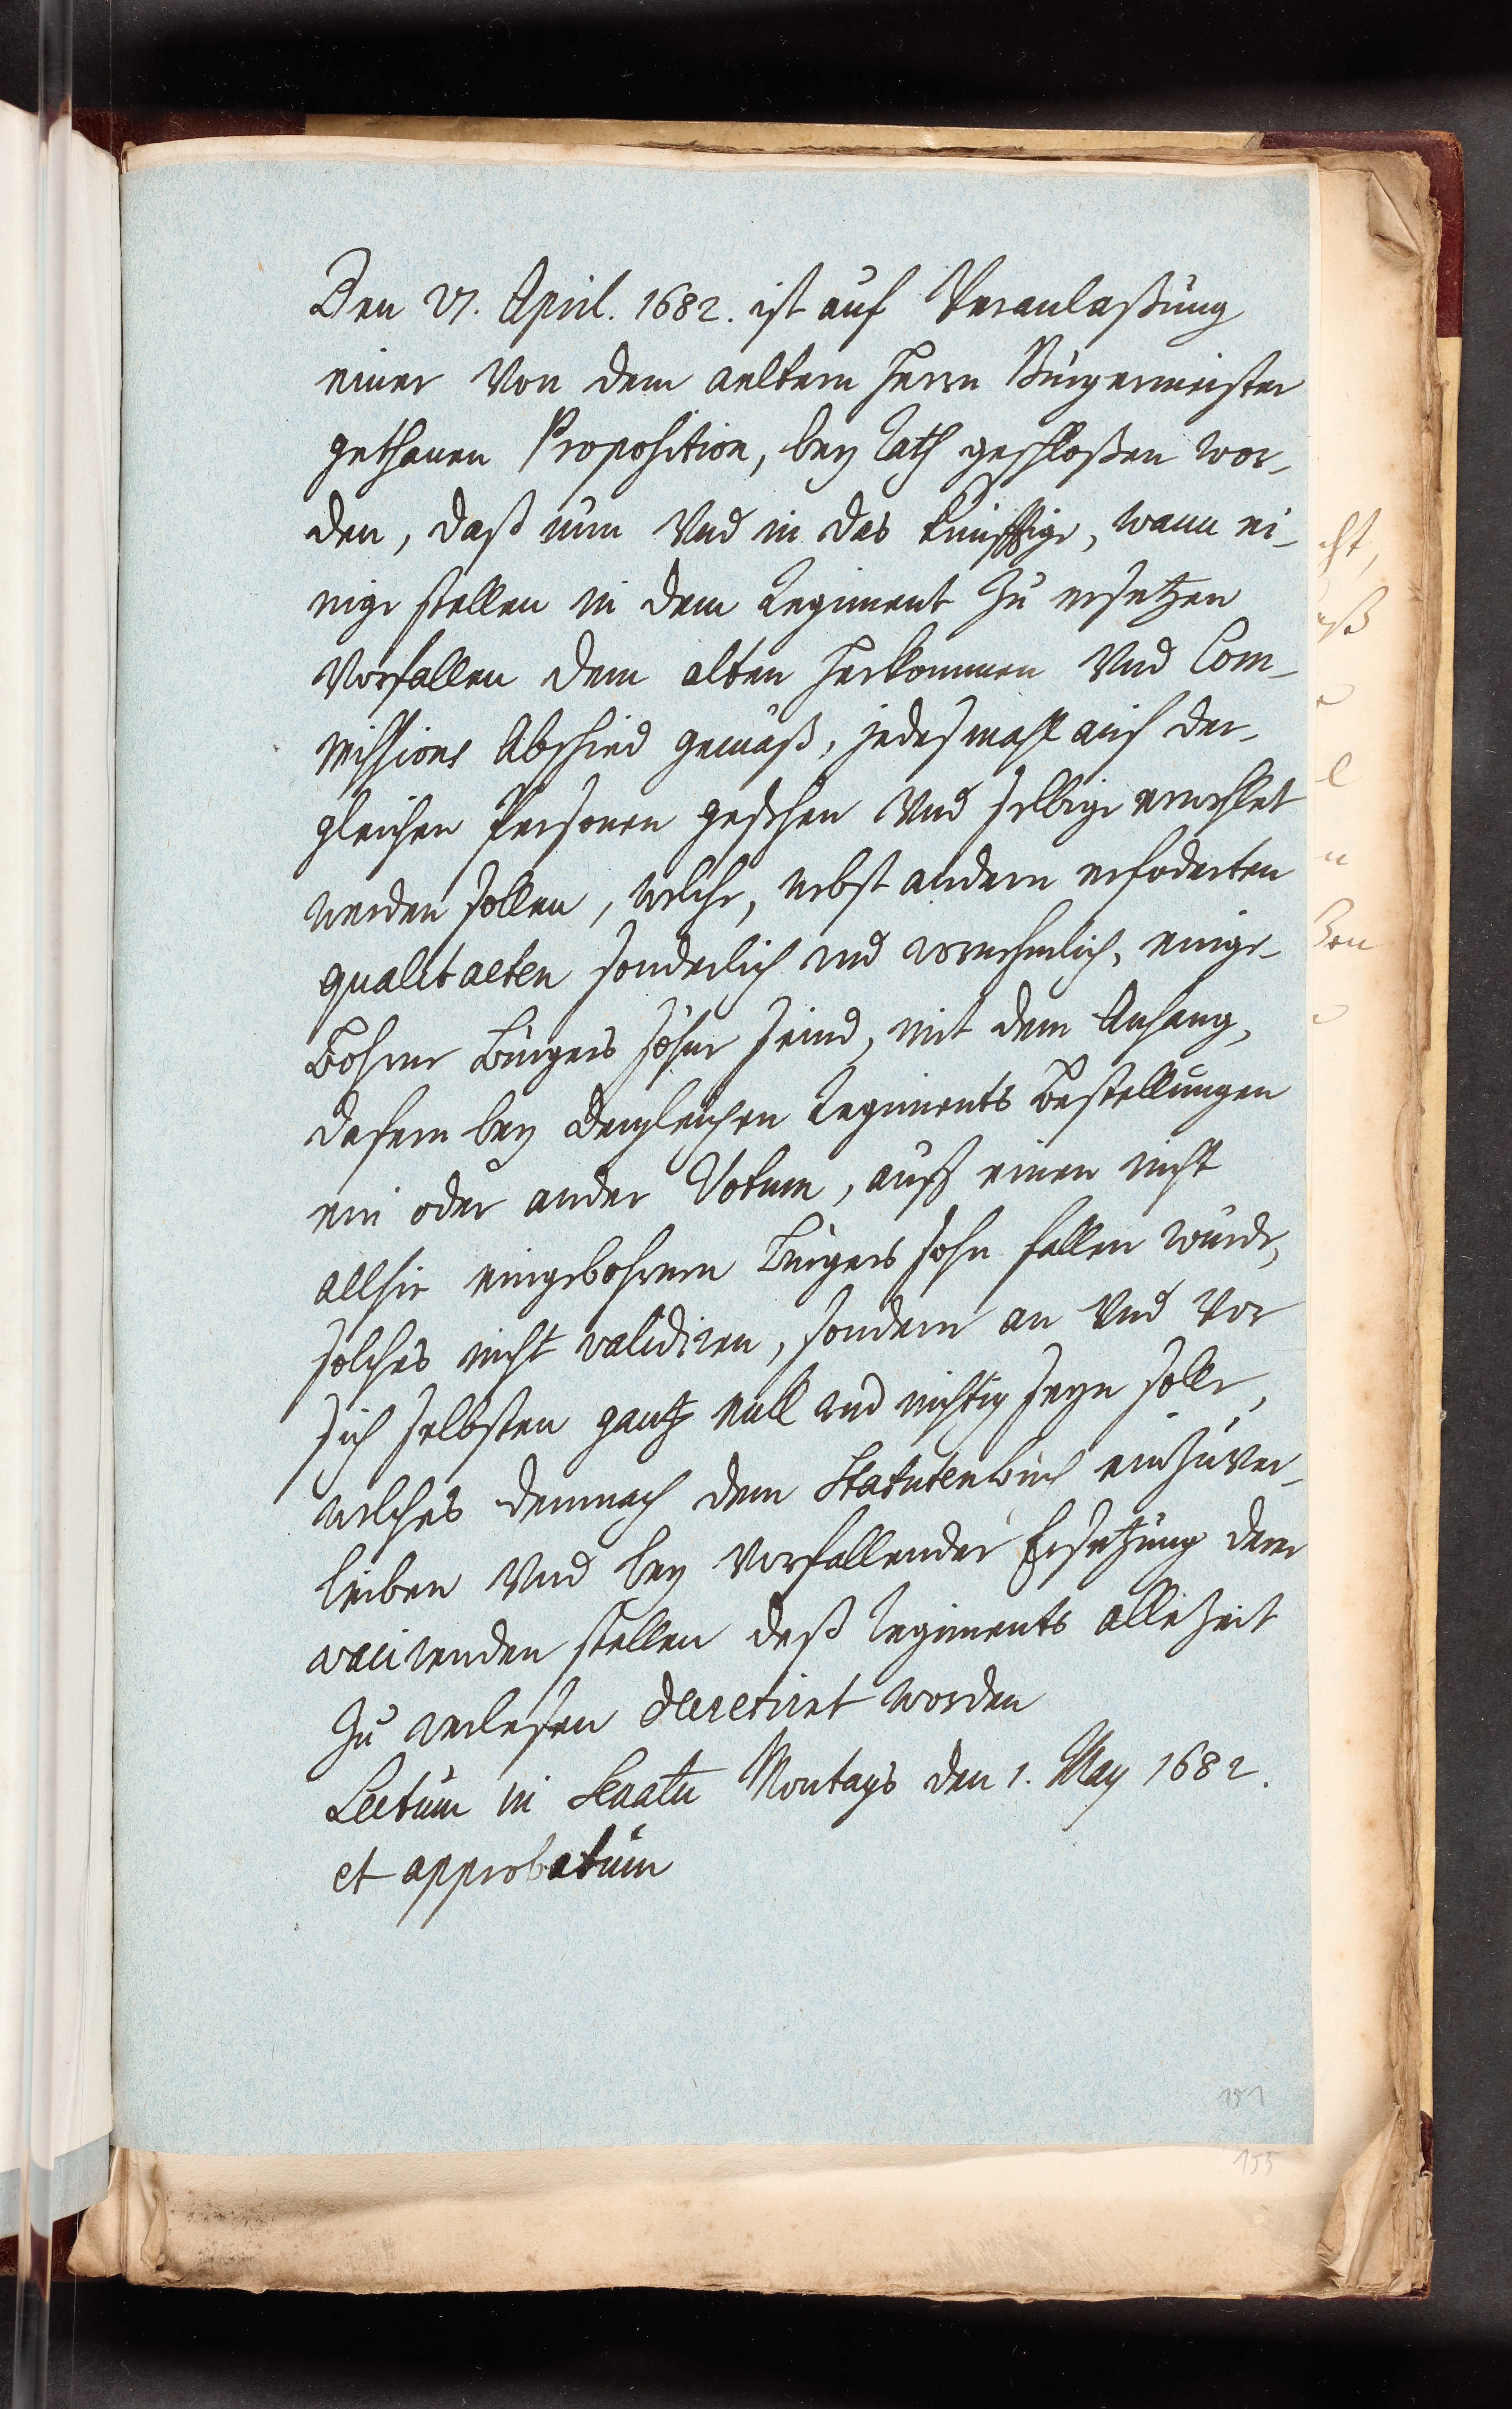 Den 27. April. 1682. ist auf Veranlaßung
einer Von dem aeltern Herrn Bürgermeister
gethanen Proposition, bey Rath geschloßen wor-
den, daß nun Und in das künfftige, wann ei-
nige stellen in dem Regiment zu ersetzen
Vorfallen dem alten Herkommen Und Com-
missions Abschied gemäß, jedesmahl auf der-
gleichen Personen gesehen Und selbige erwehlet
werden sollen, welche, nebst andern erfoderten
qualitaeten sonderlich und vornehmlich, einge-
Bohrne Burgers söhne seind, mit dem Anhang,
dafern bey dergleichen Regiments Bestellungen
ein oder ander Votum, auff einen nicht
allhie eingebohrnen Burgers sohn fallen würde,
solches nicht validiren, sondern an Und Vor
sich selbsten gantz null und nichtig seyn solle,
welches demnach dem Statutenbuch einzuver-
leiben Und bey Vorfallender Ersetzung der
vacirenden stellen deß Regiments allezeit
zu verlesen decretiret worden
Lectum in Senatu Montags den 1. May 1682.
et approbatum
151
155